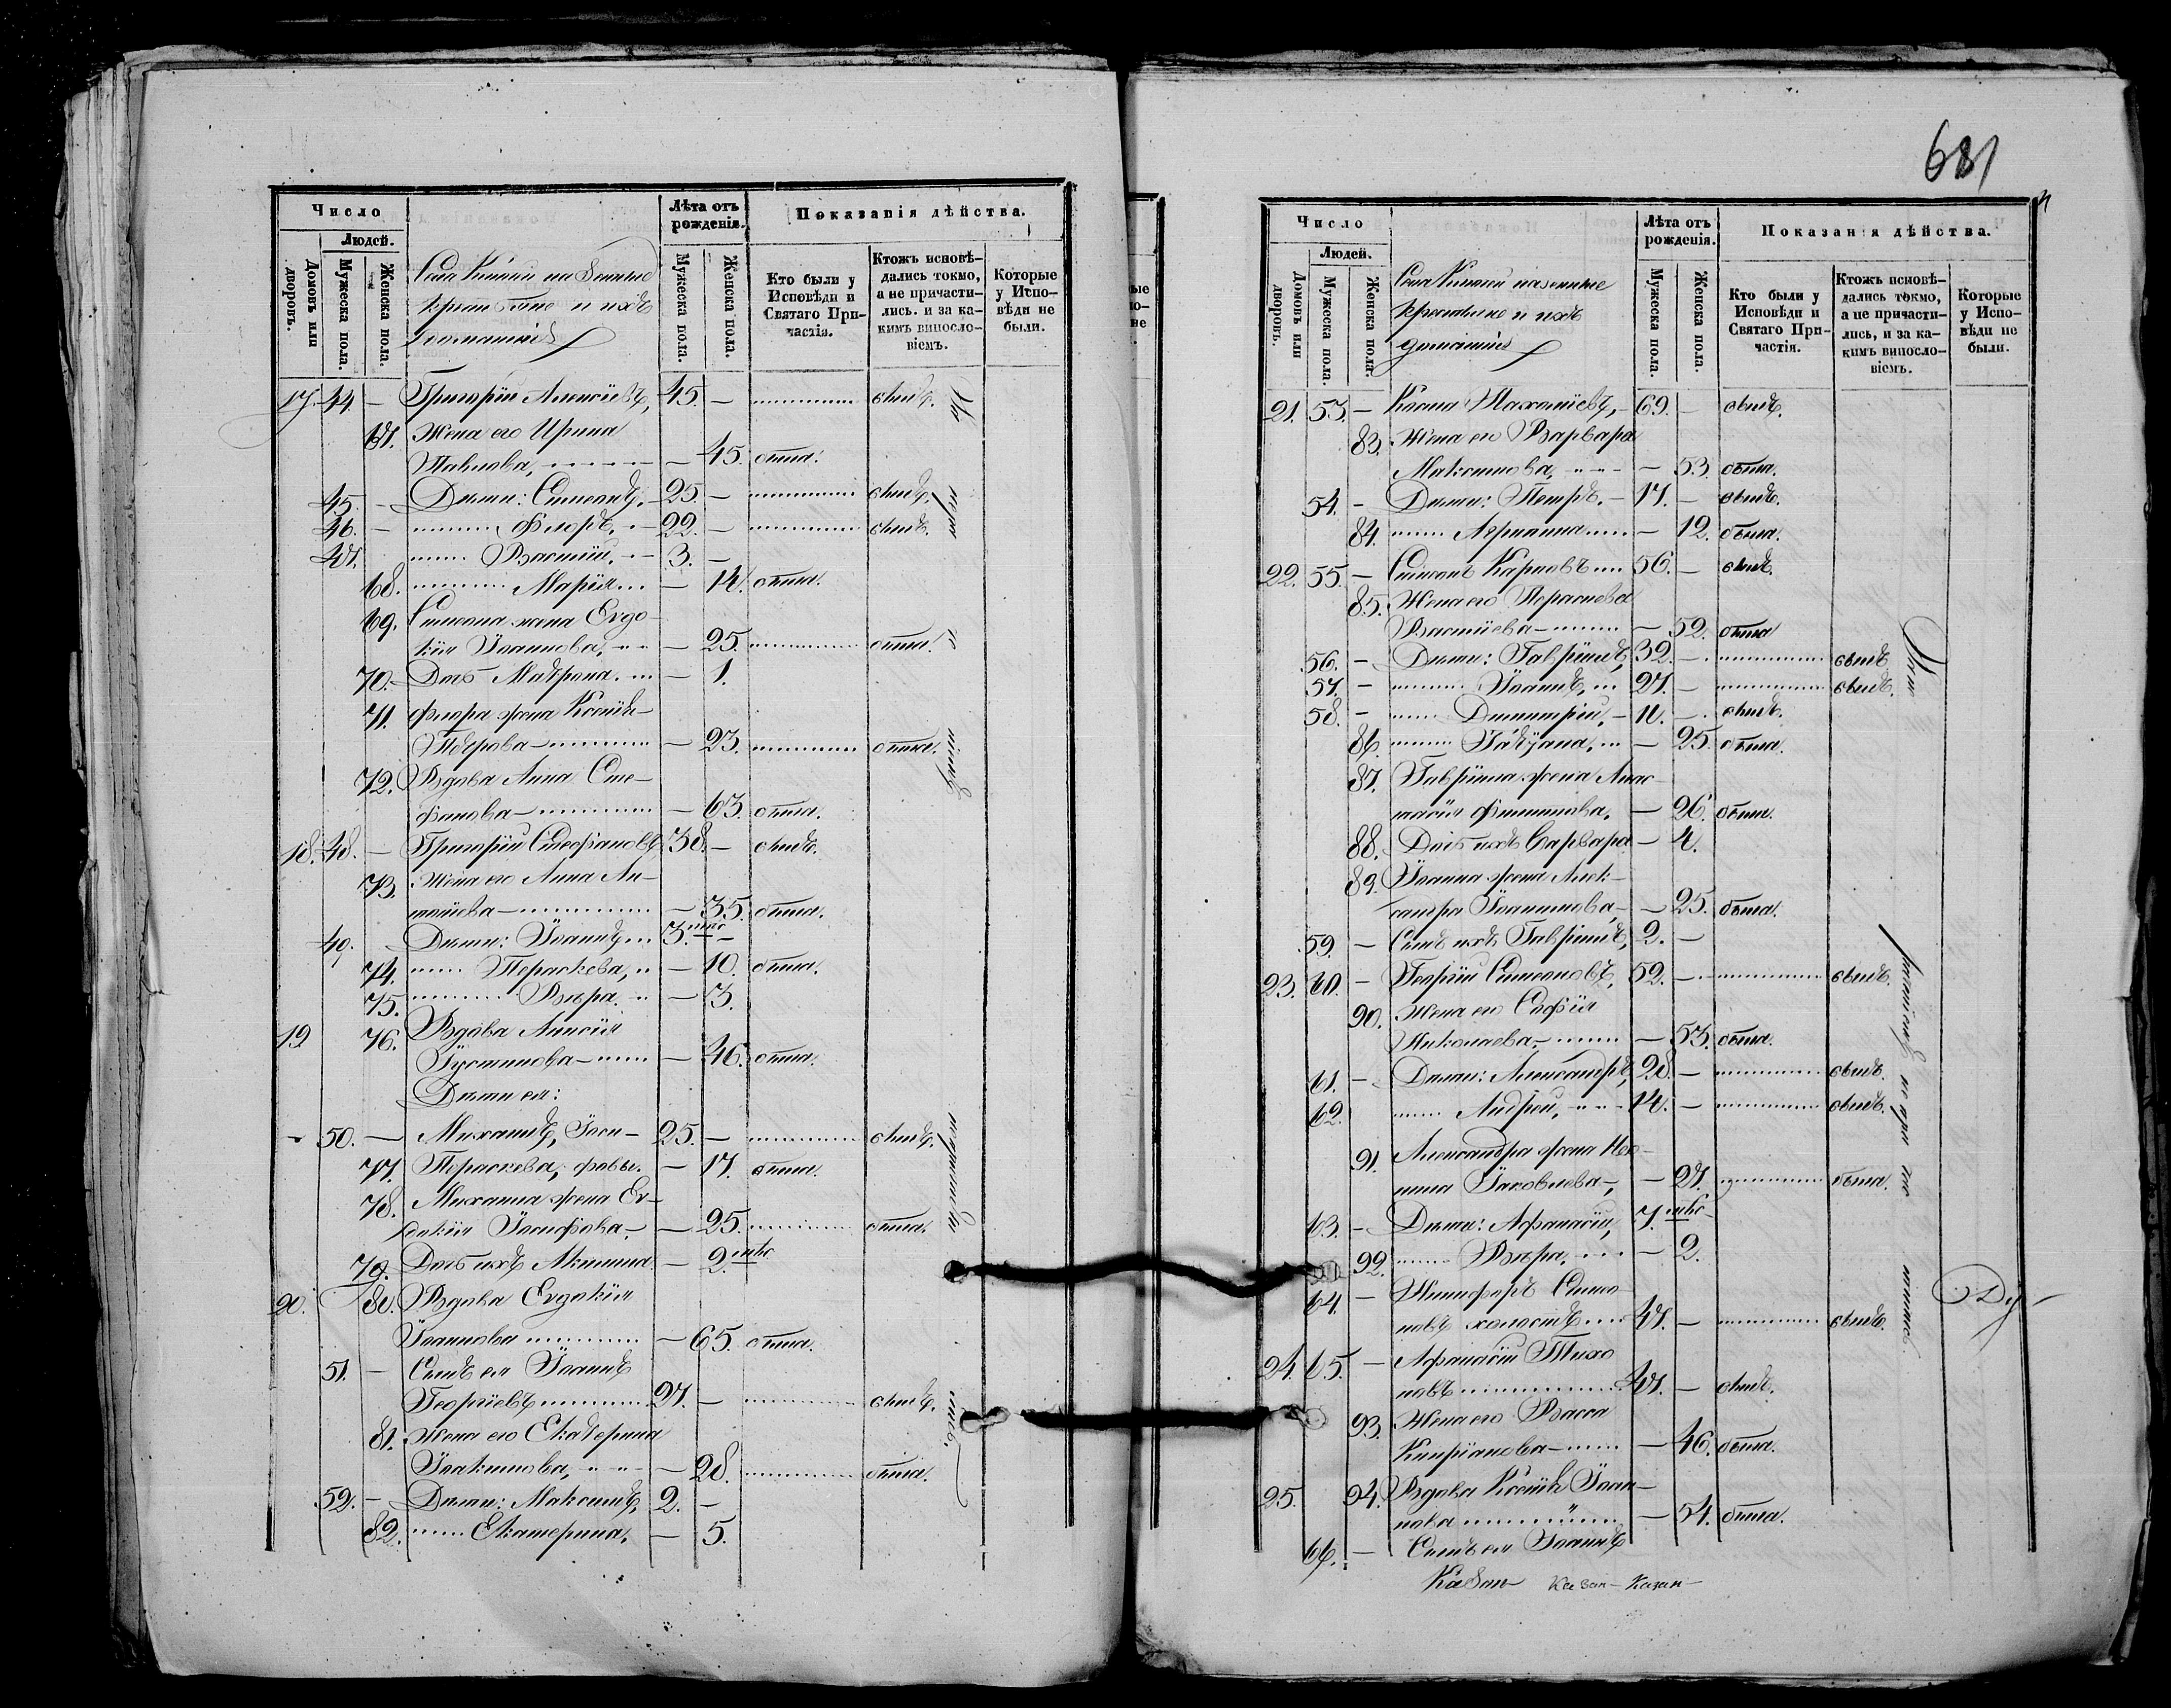 Число
Людей.
Домовъ или дворовъ.
Мужеска пола.
Женска пола.
крестьяне и ихъ
домашніе
Лѣта отъ рожденія.
Мужеска пола.
Женска пола.
Показанія дѣйства.
Кто были у Исповѣди и Святаго Причастія.
Ктожъ исповѣдались токмо, а не причастились. и за какимъ винословіемъ.
Которые у Исповѣди не были.
17. 44. — Григорій Алексіевъ, 45. —
67. Жена его Ирина
Павлова, — 45. была.
45. — Дѣти: Симеонъ, 25. —
46. — Флоръ, 22. —
47. Василій, 3. —
68. Марія — 14. была.
69. Симеона жена Евдо-
кія Іоаннова, — 25. была.
70. Дочь Матрона. — 1.
71. Флора жена Ксенія
— 23. была.
72. Вдова Анна Сте-
фанова — 63. была.
18. 48. — Григорій Стефановъ, 38. — былъ.
73. Жена его Анна
— 35. была.
49. Дѣти: Іоаннъ 3. мѣс —
74. Параскева, — 10. была.
75. Вѣра. — 3.
19 76. Вдова Анисія
Іустинова — 46. была.
Дѣти ея:
50. — Михаилъ, 25. — былъ.
77. Параскева, — 17. была.
78. Михаила жена Ев-
докія Іосифова, — 25. была.
79. Дочь ихъ Акилина — 2. мѣс
20. 80. Вдова Евдокія
Іоаннова — 65. была.
51. — Сынъ ея Іоаннъ
Георгіевъ 27. — былъ.
81. Жена его Екатерина
Іоакимова, — 28. была.
52. — Дѣти: Максимъ, 2. —
82. Екатерина, — 5.
681
Число
Людей.
Домовъ или дворовъ.
Мужеска пола.
Женска пола.
крестьяне и ихъ
домашніе
Лѣта отъ рожденія.
Мужеска пола.
Женска пола.
Показанія дѣйства.
Кто были у Исповѣди и Святаго Причастія.
Ктожъ исповѣдались токмо, а не причастились, и за какимъ винословіемъ.
Которые у Исповѣди не были.
21. 53. — Косма Пахоміевъ, 69. — былъ.
83. Жена его Варвара
Максимова, — 53. была.
54. — Дѣти: Петръ. 17. — былъ.
84. — 12. была.
22. 55. — Симеонъ Карповъ 56. — былъ.
85. Жена его Параскева
Василіева — 52. была
56. — Дѣти: Гавріилъ, 32. — былъ
57. — Іоаннъ, 27. — былъ.
58. — Димитрій, — былъ.
86. Татіана, — 25. была.
87. Гавріила жена Анас-
тасія Филиппова, — 26. была.
88. Дочь ихъ Варвара — 4.
89. Іоанна жена Алек-
сандра Іоаннова, — 25. была.
59. — Сынъ ихъ Гавріилъ, 2. —
23. 60. — Георгій Симеоновъ, 52. — былъ.
90. Жена его Софія
Николаева, — 53. была.
61. — Дѣти: Александръ, 28. — былъ.
62. Андрей, 14. — былъ.
91. Александра жена
Іаковлева, — 27. была.
63. — Дѣти: Афанасій, 7. мѣс
92. Вѣра, — 2.
64. — Никифоръ Симео-
новъ холостъ 47. — былъ.
24. 65. — Афанасій Тихо
новъ 47. — былъ.
93. Жена его Васса
Кипріанова — 46. была.
25. 94. Вдова Ксенія Іоан-
нова — 54. была.
66. — Сынъ ея Іоаннъ
Казан- Казан- Казан-